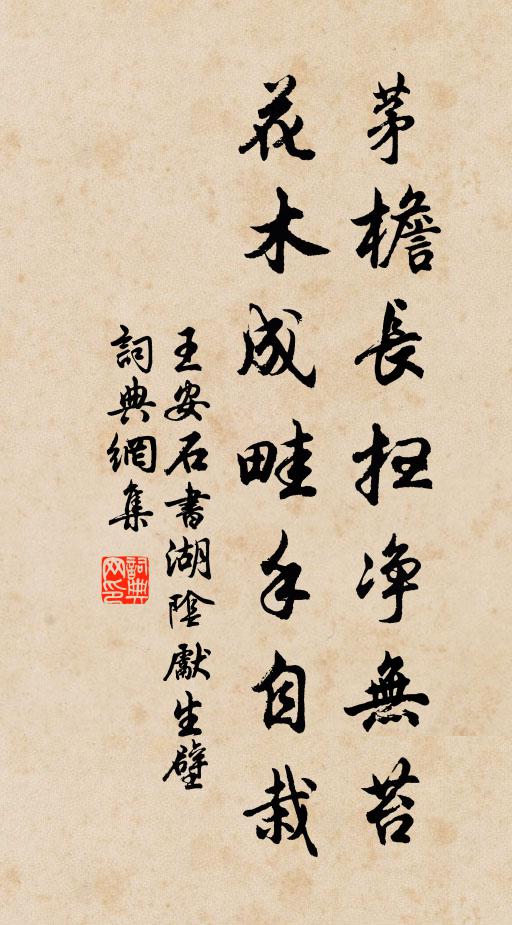 茅檐長扫净無苔
花木成畦手自栽
王安石書湖陰獻生壁
詞典網集
詞典
网印